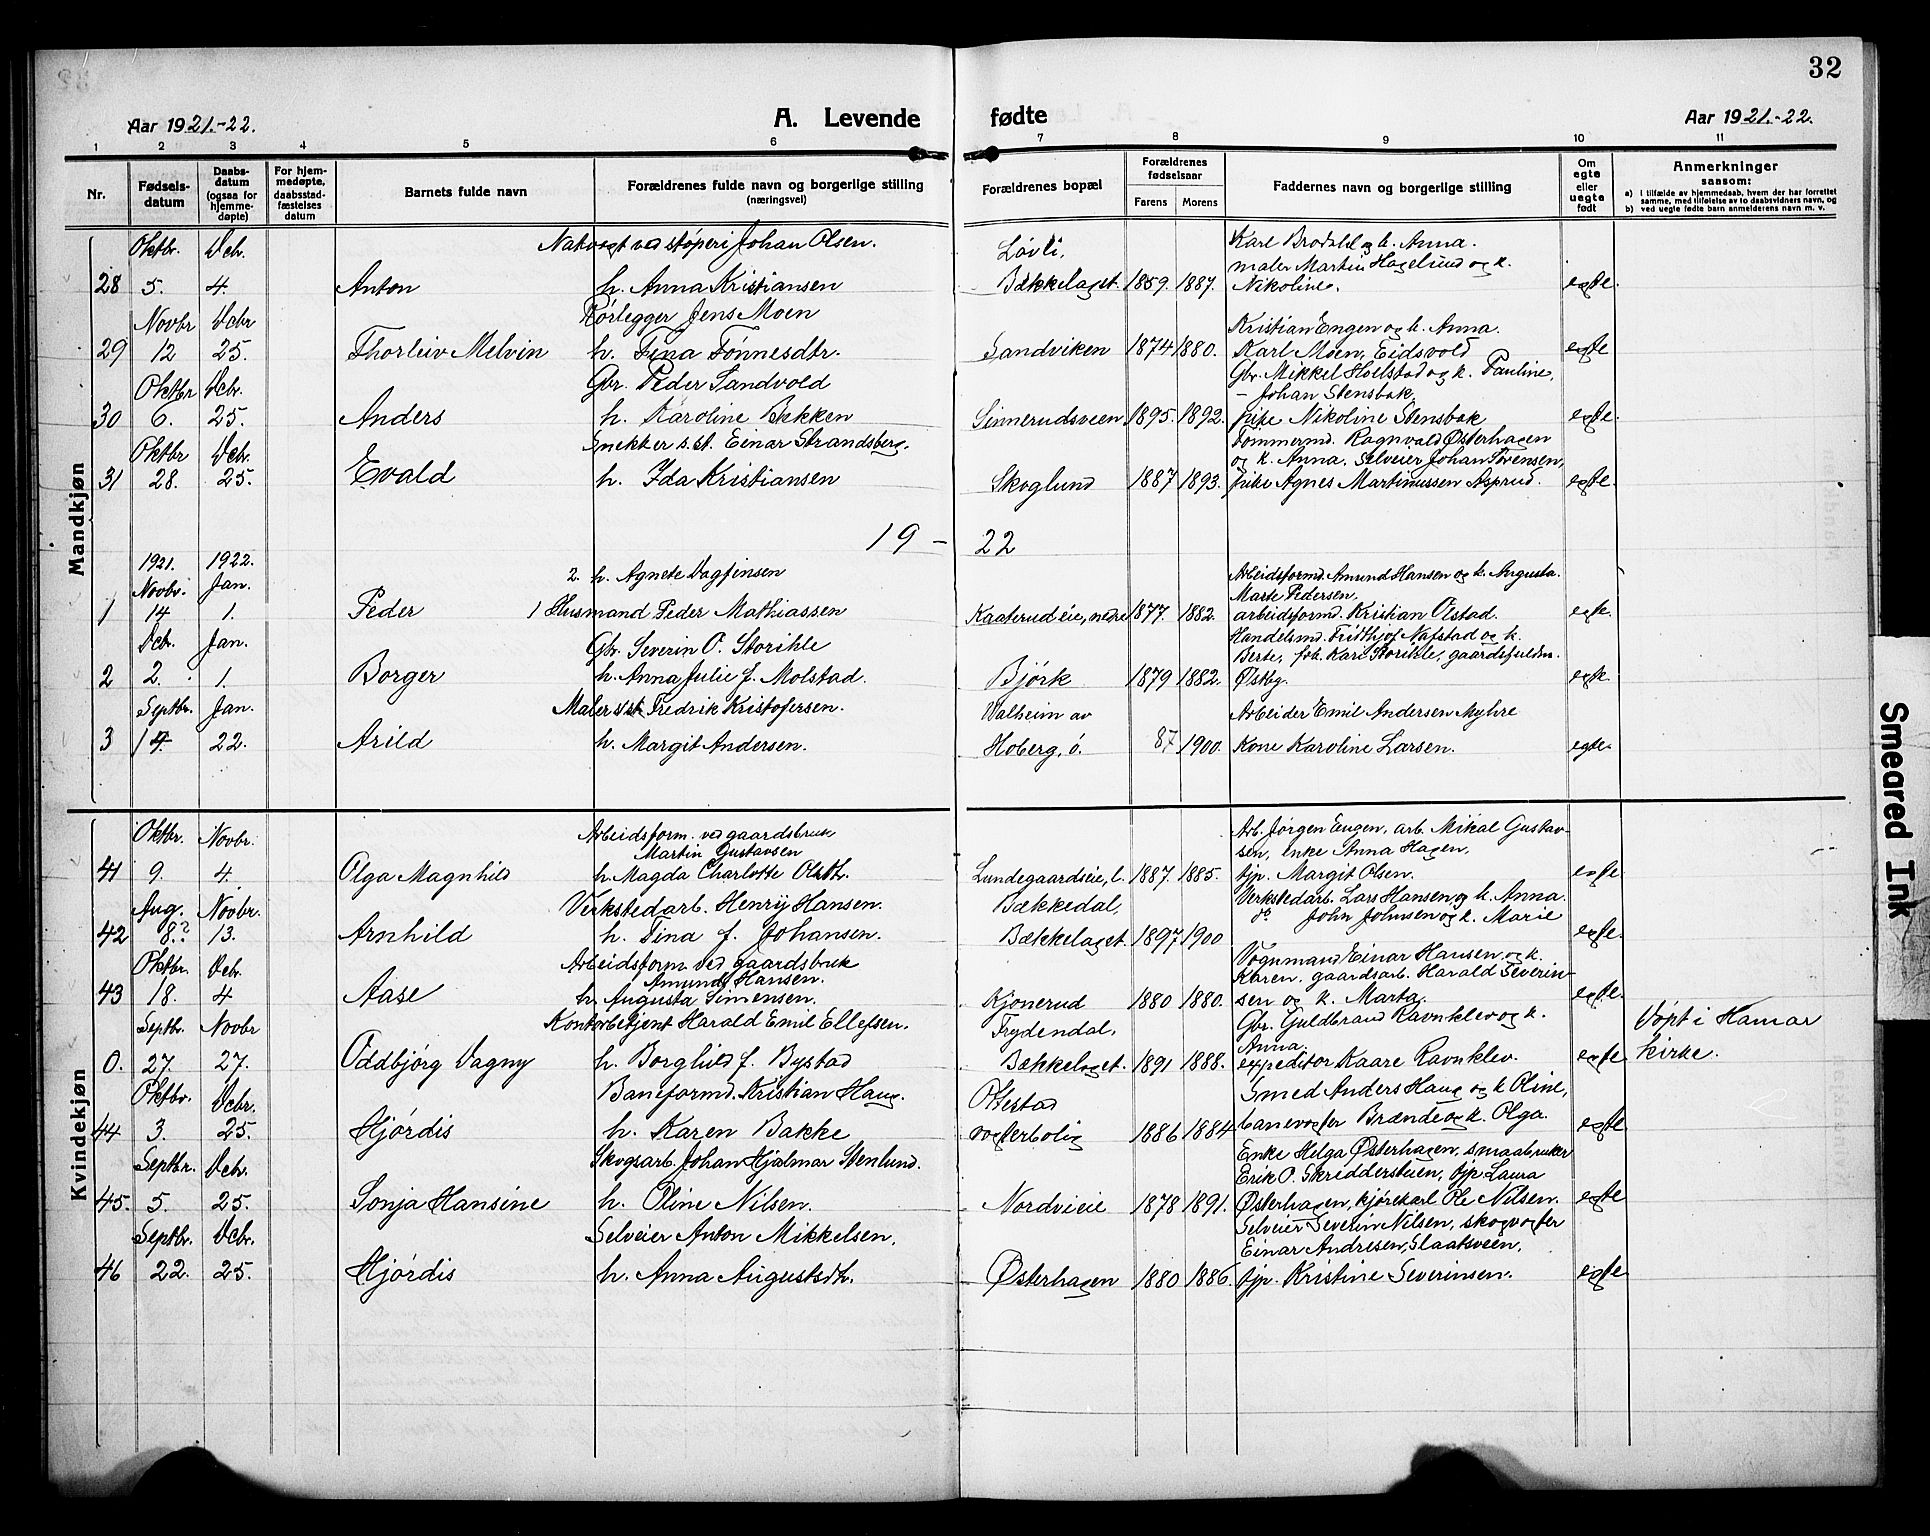 32
Aar 1921.-22.
A. Levende fødte
Aar 1921.-22.
1 2 3 4 5 6 7 8 9 10 11
Nr.
Fødsels-
datum
Daabs-
datum
(ogsaa for
hjemme-
døpte)
For hjem-
medøpte,
daabsstad-
fæstelses
datum
Barnets fulde navn
Forældrenes fulde navn og borgerlige stilling
(næringsvei)
Forældrenes bopæl
Forældrenes
fødselsaar
Farens Morens
Faddernes navn og borgerlige stilling
Om
egte
eller
uegte
født
Anmerkninger
saasom:
a) i tilfælde av hjemmedaab, hvem der har forrettet
samme, med tilføielse av to daabsvidners navn, og
b) ved uegte fødte barn anmelderens navn m. v.
Mandkjøn
Oktbr. Dcb. Natvogt ved støperi Johan Olsen. Løvli, Karl Brodahl og k. Anna.
maler Martin Hagelund og k.
28 5. 4. Anton h. Anna Kristiansen Bækkelaget. 1859. 1887. Nikoline. egte.
Novbr Dcbr Rørlegger Jens Moen Kristian Engen og k. Anna.
29 12 25. Thorleiv Melvin h. Tina Tønnesdtr. Sandviken 1874 1880. Karl Moen, Eidsvold egte
Oktbr Dcbr. Gbr. Peder Sandvold Gbr. Mikkel Hoelstad og k. Pauline,
- Johan Stensbak,
30 6. 25. Anders h. Karoline Bækken Sinnerudsveen 1895. 1892. pike Nikoline Stensbak egte.
Oktbr Dcb. Snekker s.st. Einar Strandsberg. Tømmermd. Ragnvald Østerhagen
og k. Anna. Selveier Johan Sørensen,
31 28. 25. Evald h. Ida Kristiansen Skoglund 1887 1893. pike Agnes Martinussen Asprud. egte.
19 - 22
1921. 1922.
Novbr. Jan. 2. h. Agnete Dagfinsen Arbeidsformd. Amund Hansen og k. Augusta.
Marte Pedersen,
1 14 1. Peder 1 Husmand Peder Mathiassen Kaaterud eie, nedre 1877. 1882. arbeidsformd. Kristian Olstad. egte
Dcb. Jan. Gbr. Severin O. Storihle Handelsmd. Fridthjof Nafstad og k.
Berte, frk. Kari Storihle, gaardsfuldm.
2 2. 1. Borger h. Anna Julie f. Molstad. Bjørk 1879 1882. Østby. egte.
Septbr. Jan. Maler s.st. Fredrik Kristofersen. Valheim av Arbeider Emil Andersen Myhre
3 14. 22. Arild h. Margit Andersen. Hoberg, ø. 87 1900. Kone Karoline Larsen. egte.
Kvindekjøn
Oktbr. Novbr. Arbeidsform. ved gaardsbruk Arb. Jørgen Engen, arb. Mikal Gustav-
Martin Gustavsen sen, enke Anna Hagen,
41 9. 4. Olga Magnhild h. Magda Charlotte Olsdtr. Lundegaardseie, l. 1887. 1885. tjp. Margit Olsen. egte
Aug. Novbr. Verkstedarb. Henry Hansen. Bækkedal, Verkstedarb. Lars Hansen og k. Anna.
do John Johnsen og k. Marie
42 8.? 13. Arnhild h. Sina f. Johansen. Bækkelaget. 1897 1900 egte.
Oktbr. Dcb. Arbeidsform ved gaardsbruk Vognmand Einar Hansen, og k.
Amund Hansen. Karen, gaardsarb. Harald Severin-
43 18. 4 Aase h. Augusta Simensen. Kjonerud 1880 1880. sen og k. Marta. egte.
Septbr. Novbr Kontorbetjent Harald Emil Ellefsen. Frydendal, Gbr. Guldbrand Ravnklev og k. Døpt i Hamar
Anna.
0. 27. 27. Oddbjørg Dagny h. Borghild f. Bystad Bækkelaget. 1891 1888. expeditør Kaare Ravnklev. egte kirke.
Oktbr. Dcbr. Baneformd. Kristian Haug. Ottestad Smed Anders Haug og k Oline,
44 3. 25. Hjørdis h. Karen Bakke vogterbolig 1886 1884 banevogter Brænde og k. Olga. egte
Septbr. Dcb. Skogsarb. Johan Hjalmar Stenlund. Enke Helga Østerhagen, smaabruker
Erik O. Skridderstuen, tjp. Laura
45. 5. 25. Sonja Hansine h. Oline Nilsen. Nordvieie 1878 1891. Østerhagen, kjørekarl Ole Nilsen. egte
Septbr. Dcb. Selveier Anton Mikkelsen. Selveier Severin Nilsen, skogvogter
Einar Andresen, Slaatsveen,
46 22. 25. Hjørdis h. Anna Augustsdtr. Østerhagen 1880 1886. tjp. Kristine Severinsen. egte
Smeared Ink